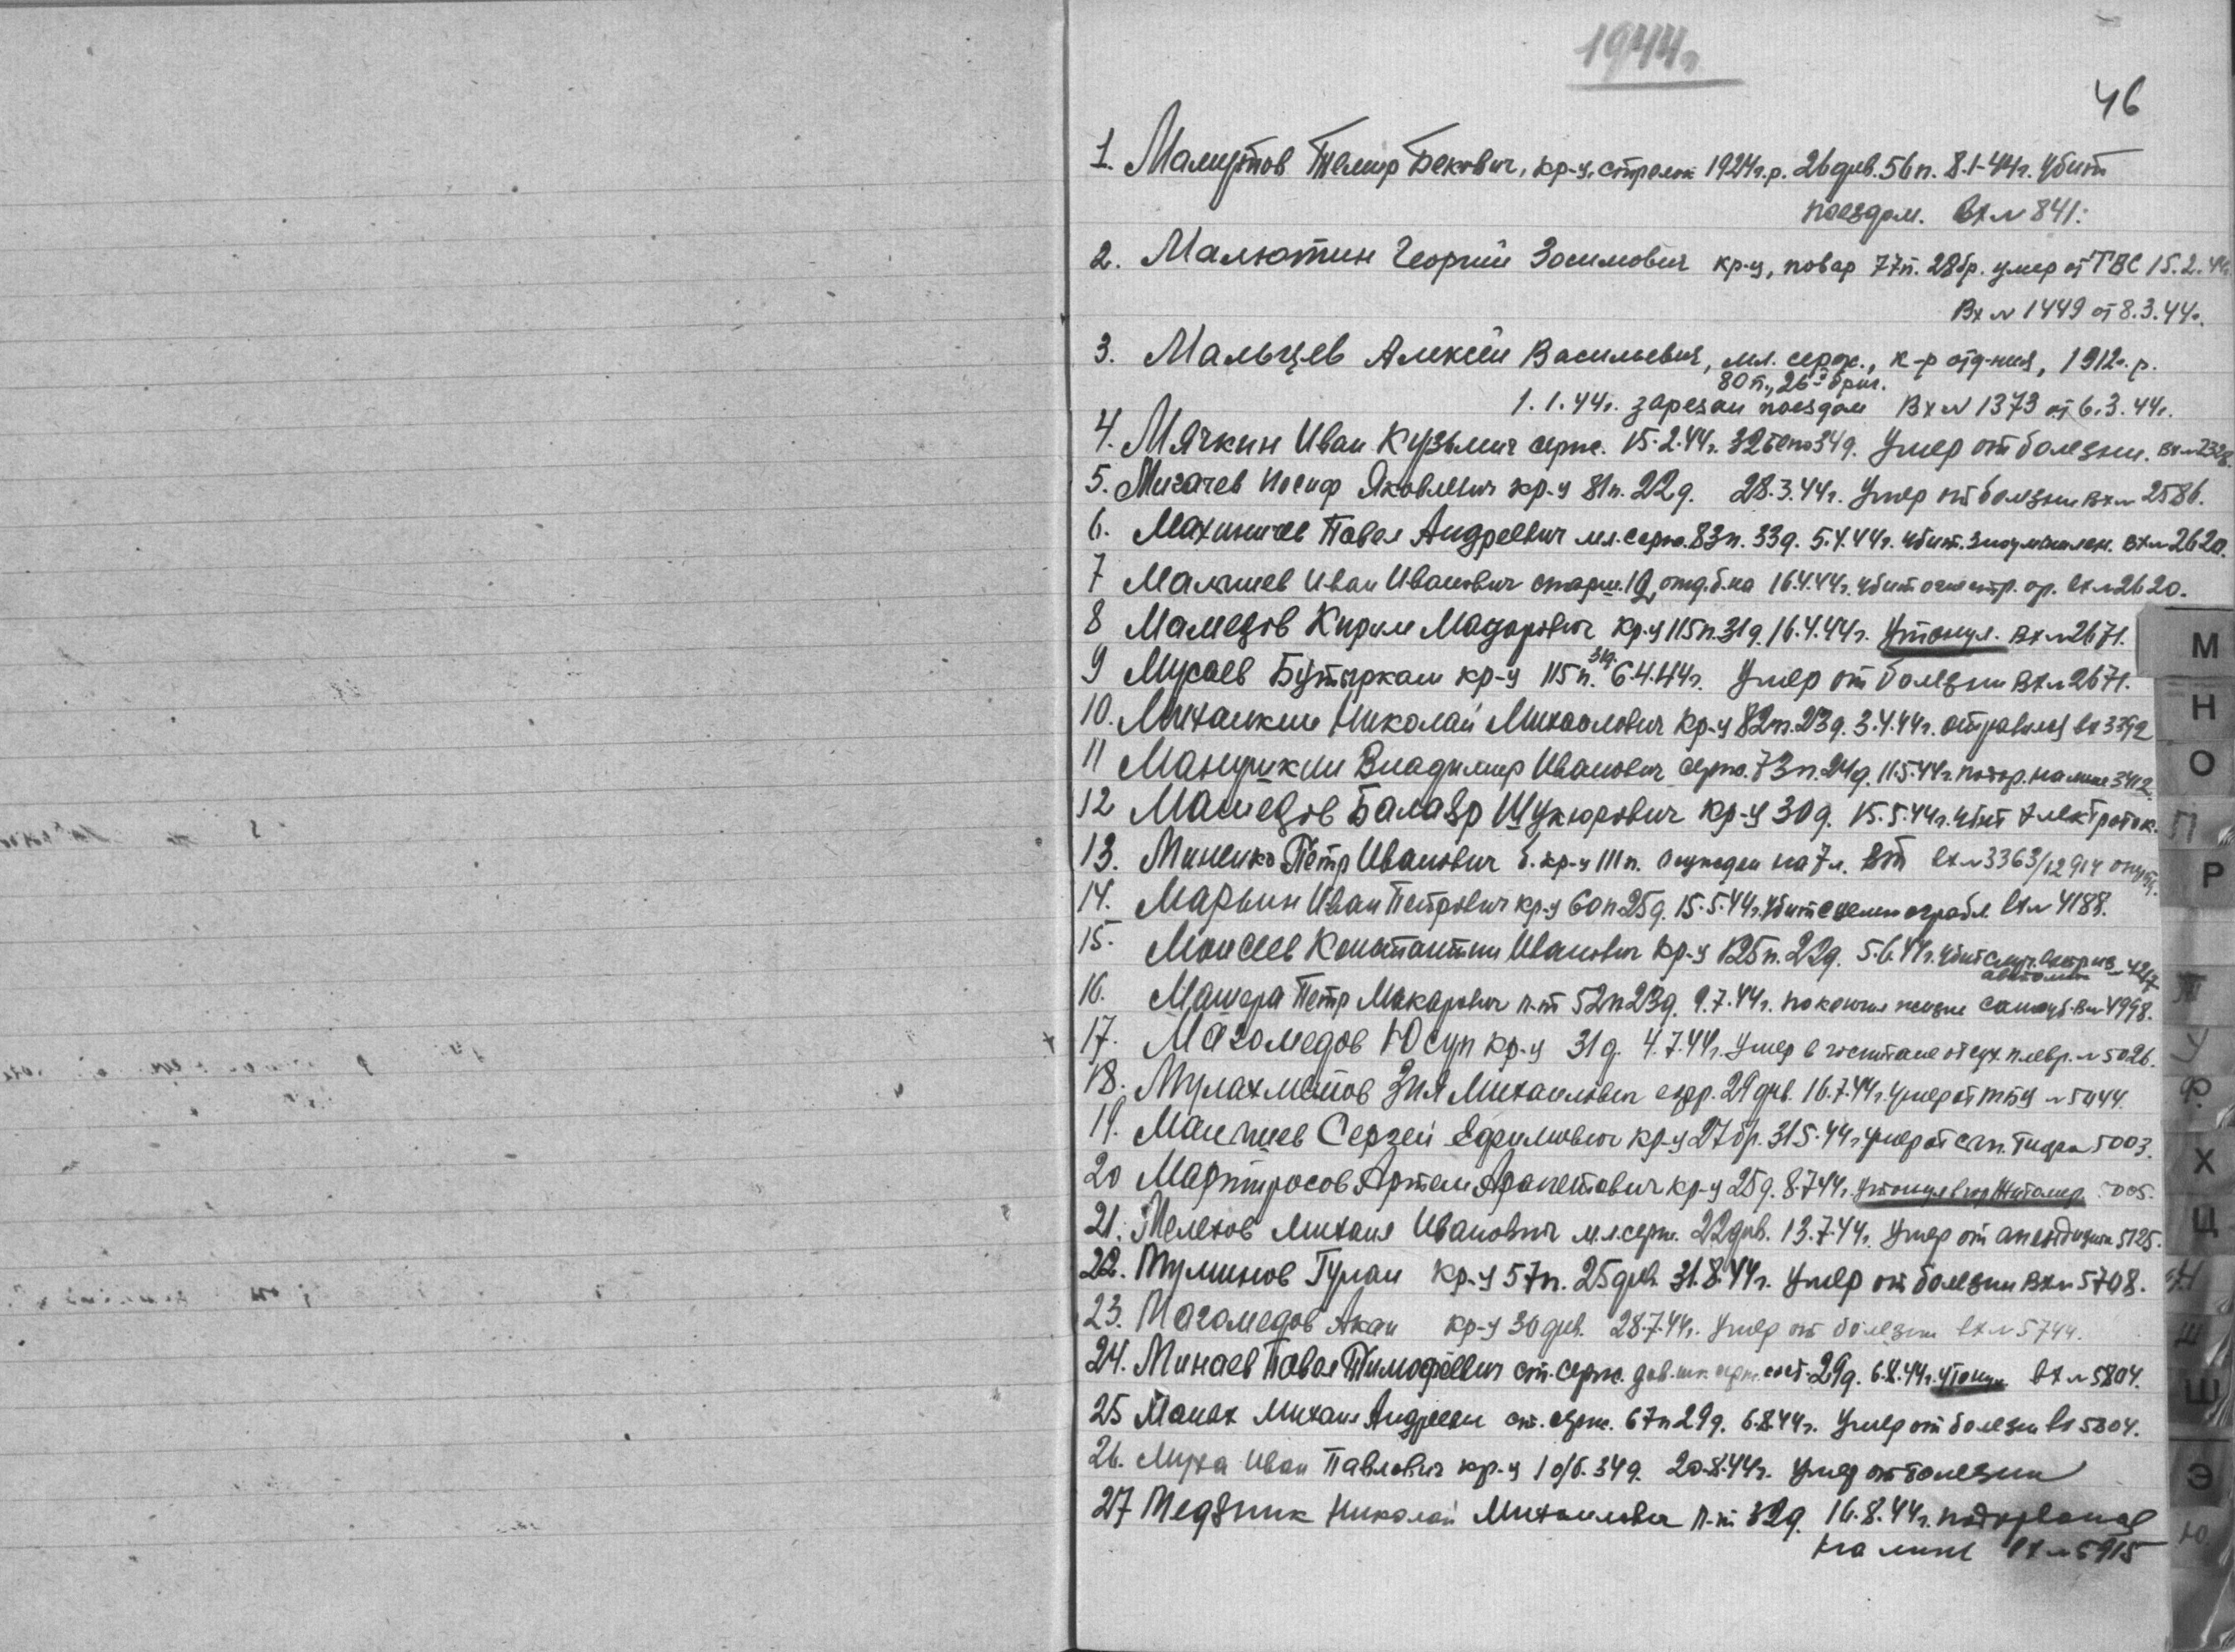 1944г
46
1. Мамутов Темир Бекович, кр-ц, стрелок 1924г.р. 26 див. 56п. 8.1-44г. убит
поездом. Вх № 841.
2. Малютин Георгий Зосимович кр-ц, повар 77п. 28бр. умер от ТВС 15.2.44
Вх № 1449 от 8.3.44г.
3. Мальцев Алексей Васильевич, мл. серж., к-р отд-ния, 1912г.р.
80п., 26й бриг.
1.1.44г. зарезан поездом Вх № 1373 от 6.3.44г.
4. Мячкин Иван Кузьмич серж. 15.2.44г. 34д. Умер от болезни. Вх №
5. Мигачев Иосиф Яковлевич кр-ц 81п. 22д. 28.3.44г. Умер от болезни Вх № 2586.
6. Павел Андреевич мл. серж. 83п. 33д. 5.4.44г. убит. Вх № 2620.
7 Малышев Иван Иванович старш. 19 отд. б-на 16.4.44г. убит ор. Вх № 2620.
8 Мамедов Кирим кр-ц 115п. 31д. 16.4.44г. Утонул. Вх № 2671.
9 Мусаев кр-ц 115п. 31д. 6.4.44г. Умер от болезни Вх № 2671.
10. Михалкин Николай Михайлович кр-ц 82п. 23д. 3.4.44г. отравился Вх 3392
11 Манушкин Владимир Иванович серж. 73п. 24д. 11.5.44г. подор. на мине 3412.
12 Мамедов Балавр Шукюрович кр-ц 30д. 15.5.44г. убит электроток.
13. Миненко Петр Иванович б. кр-ц 111п. Осужден на 7л. ВТ Вх № 3363/12914
14. Марьин Иван Петрович кр-ц 60п. 25д. 15.5.44г. убит с целью ограбл. Вх № 4188.
15. Моисеев Константин Иванович кр-ц 125п. 22д. 5.6.44г. убит случ. выстр из 4247
автомат
16. Мащера Петр Макарович л-т 52п. 23д. 9.7.44г. покончил жизнь самоуб. Вх 4998.
17. Магомедов Юсуп кр-ц 31д. 4.7.44г. Умер в госпитале от сух. плевр. № 5026.
18. Мулахметов Зия Михайлович 29 див. 16.7.44г. умер от № 5044.
19. Малышев Сергей Ефимович кр-ц 27бр. 31.5.44г. умер от сып. тифа 5003.
20 Мартиросов Артем Арапетович кр-ц 25д. 8.7.44г. утонул в гор. Житомир. 5005.
21. Мелехов Михаил Иванович мл. серж. 22див. 13.7.44г. Умер от апендицита 5125.
22. Муминов Гулам кр-ц 57п. 25див. 31.8.44г. Умер от болезни Вх № 5708.
23. Магомедов Акан кр-ц 30 див. 28.7.44г. Умер от болезни Вх № 5744.
24. Минаев Павел Тимофеевич ст. серж. див. шк. серж. сост. 29д. 6.8.44г. утонул Вх № 5804.
25 Михаил Андреевич ст. серж. 67п 29д. 6.8.44г. Умер от болезни Вх 5804.
26. Муха Иван Павлович кр-ц 1 о/б. 34д. 20.8.44г. Умер от болезни
27 Медяник Николай Михайлович л-т 32д. 16.8.44г. подорвался
на мине Вх № 5915
М
Н
О
П
Р
Т
У
Ф
Х
Ц
Ч
Ш
Щ
Э
Ю